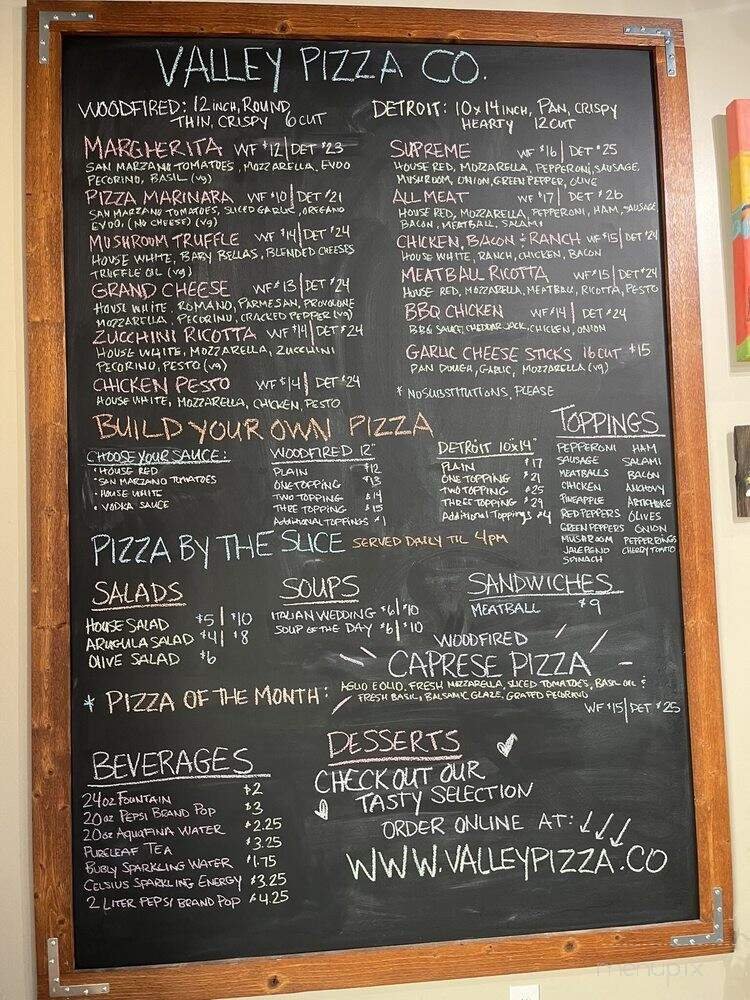 VALLEY PIZZA CO.
WOODFIRED: 12 INCH, ROUND
THIN, CRISPY 6 CUT
DETROIT: 10 x 14 INCH, PAN, CRISPY
HEARTY 12 CUT
MARGHERITA WF $12 | DET $23
SAN MARZANO TOMATOES, MOZZARELLA, EVOO
PECORINO, BASIL (vg)
PIZZA MARINARA WF $10 | DET $21
SAN MARZANO TOMATOES, SLICED GARLIC, OREGANO
EVOO, (NO CHEESE) (vg)
MUSHROOM TRUFFLE WF $14 | DET $24
HOUSE WHITE, BABY BELLAS, BLENDED CHEESES
TRUFFLE OIL (vg)
GRAND CHEESE WF $13 | DET $24
HOUSE WHITE, ROMANO, PARMESAN, PROVOLONE
MOZZARELLA, PECORINO, CRACKED PEPPER (vg)
ZUCCHINI RICOTTA WF $14 | DET $24
HOUSE WHITE, MOZZARELLA, ZUCCHINI
PECORINO, PESTO (vg)
CHICKEN PESTO WF $14 | DET $24
HOUSE WHITE, MOZZARELLA, CHICKEN, PESTO
SUPREME WF $16 | DET $25
HOUSE RED, MOZZARELLA, PEPPERONI, SAUSAGE,
MUSHROOM, ONION, GREEN PEPPER, OLIVE
ALL MEAT WF $17 | DET $26
HOUSE RED, MOZZARELLA, PEPPERONI, HAM, SAUSAGE
BACON, MEATBALL, SALAMI
CHICKEN, BACON & RANCH WF $15 | DET $24
HOUSE WHITE, RANCH, CHICKEN, BACON
MEATBALL RICOTTA WF $15 | DET $24
HOUSE RED, MOZZARELLA, MEATBALL, RICOTTA, PESTO
BBQ CHICKEN WF $14 | DET $24
BBQ SAUCE, CHEDDAR JACK, CHICKEN, ONION
GARLIC CHEESE STICKS 16 CUT $15
PAN DOUGH, GARLIC, MOZZARELLA (vg)
* NO SUBSTITUTIONS, PLEASE
BUILD YOUR OWN PIZZA
CHOOSE YOUR SAUCE:
• HOUSE RED
• SAN MARZANO TOMATOES
• HOUSE WHITE
• VODKA SAUCE
WOODFIRED 12"
PLAIN $12
ONE TOPPING $13
TWO TOPPING $14
THREE TOPPING $15
Additional TOPPINGS $1
DETROIT 10"x14"
PLAIN $17
ONE TOPPING $21
TWO TOPPING $25
THREE TOPPING $29
Additional Toppings $4
TOPPINGS
PEPPERONI HAM
SAUSAGE SALAMI
MEATBALLS BACON
CHICKEN ANCHOVY
PINEAPPLE ARTICHOKE
RED PEPPERS OLIVES
GREEN PEPPERS ONION
MUSHROOM PEPPER RINGS
JALEPENO CHERRY TOMATO
SPINACH
PIZZA BY THE SLICE SERVED DAILY TIL 4PM
SALADS
HOUSE SALAD $5 | $10
ARUGULA SALAD $4 | $8
OLIVE SALAD $6
SOUPS
ITALIAN WEDDING $6 | $10
SOUP OF THE DAY $6 | $10
SANDWICHES
MEATBALL $9
WOODFIRED
CAPRESE PIZZA
* PIZZA OF THE MONTH:
AGLIO E OLIO, FRESH MOZZARELLA, SLICED TOMATOES, BASIL OIL &
FRESH BASIL, BALSAMIC GLAZE, GRATED PECORINO
WF $15 | DET $25
BEVERAGES
24oz FOUNTAIN $2
20oz PEPSI BRAND POP $3
20oz AQUAFINA WATER $2.25
PURELEAF TEA $3.25
BUBLY SPARKLING WATER $1.75
CELSIUS SPARKLING ENERGY $3.25
2 LITER PEPSI BRAND POP $4.25
DESSERTS
CHECK OUT OUR
TASTY SELECTION
ORDER ONLINE AT:
WWW.VALLEYPIZZA.CO
menupix